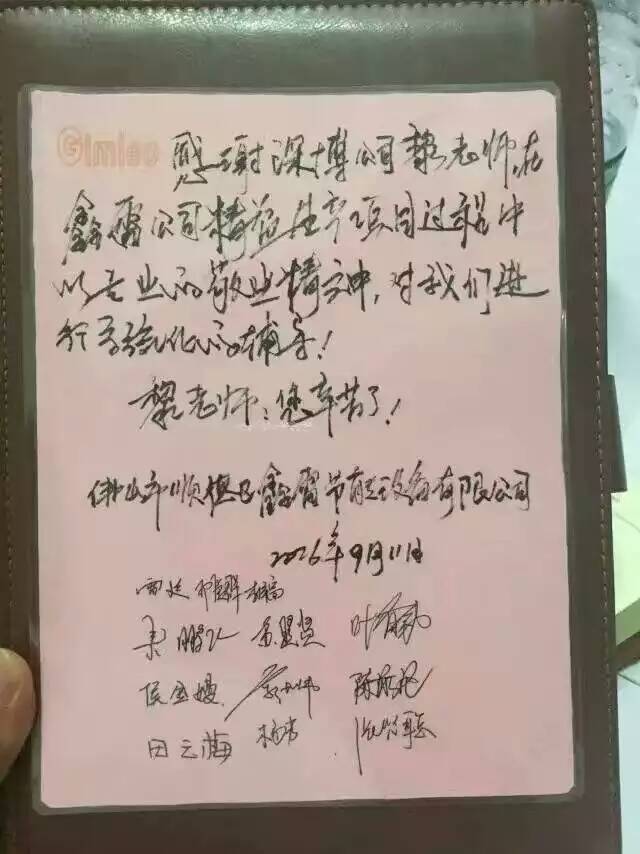 Gimiao
感谢深博公司黎老师,在
鑫雷公司精益生产项目过程中
以专业的敬业精神,对我们进
行系统化的辅导!
黎老师:您辛苦了!
佛山市顺德区鑫雷节能设备有限公司
2026年9月11日
叶
侯金嫚
田云梅